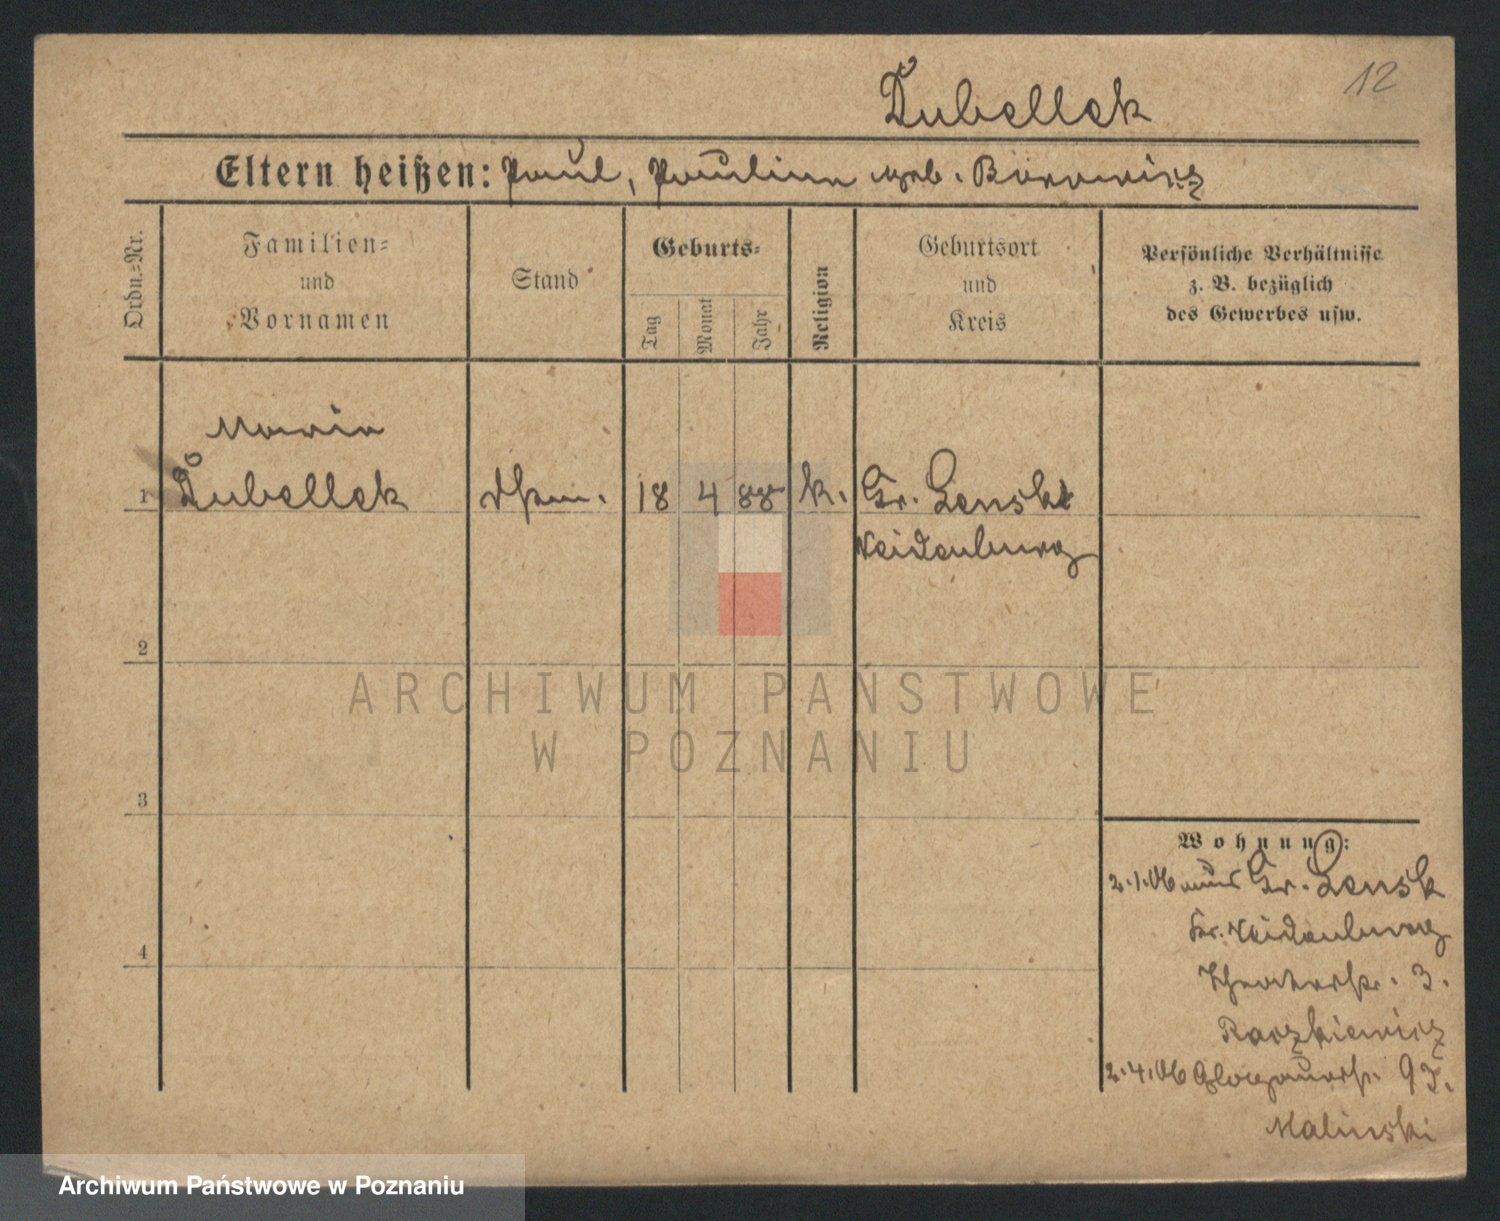 Dubellek
12
Eltern heißen: Paul, Pauline geb. Borowicz
Ordn.=Nr.
Familien=
und
Vornamen
Stand
Geburts=
Tag
Monat
Jahr
Religion
Geburtsort
und
Kreis
Persönliche Verhältnisse
z. B. bezüglich
des Gewerbes usw.
Maria
1 Dubellek 18 4 88 k. Gr. Lensk
Neidenburg
2
3
4
ARCHIWUM PAŃSTWOWE
W POZNANIU
Wohnung:
2.1.06 aus Gr. Lensk
Kr. Neidenburg
Theaterstr. 3.
Raszkiewicz
2.4.06 Glogauerstr. 95.
Malinski
Archiwum Państwowe w Poznaniu